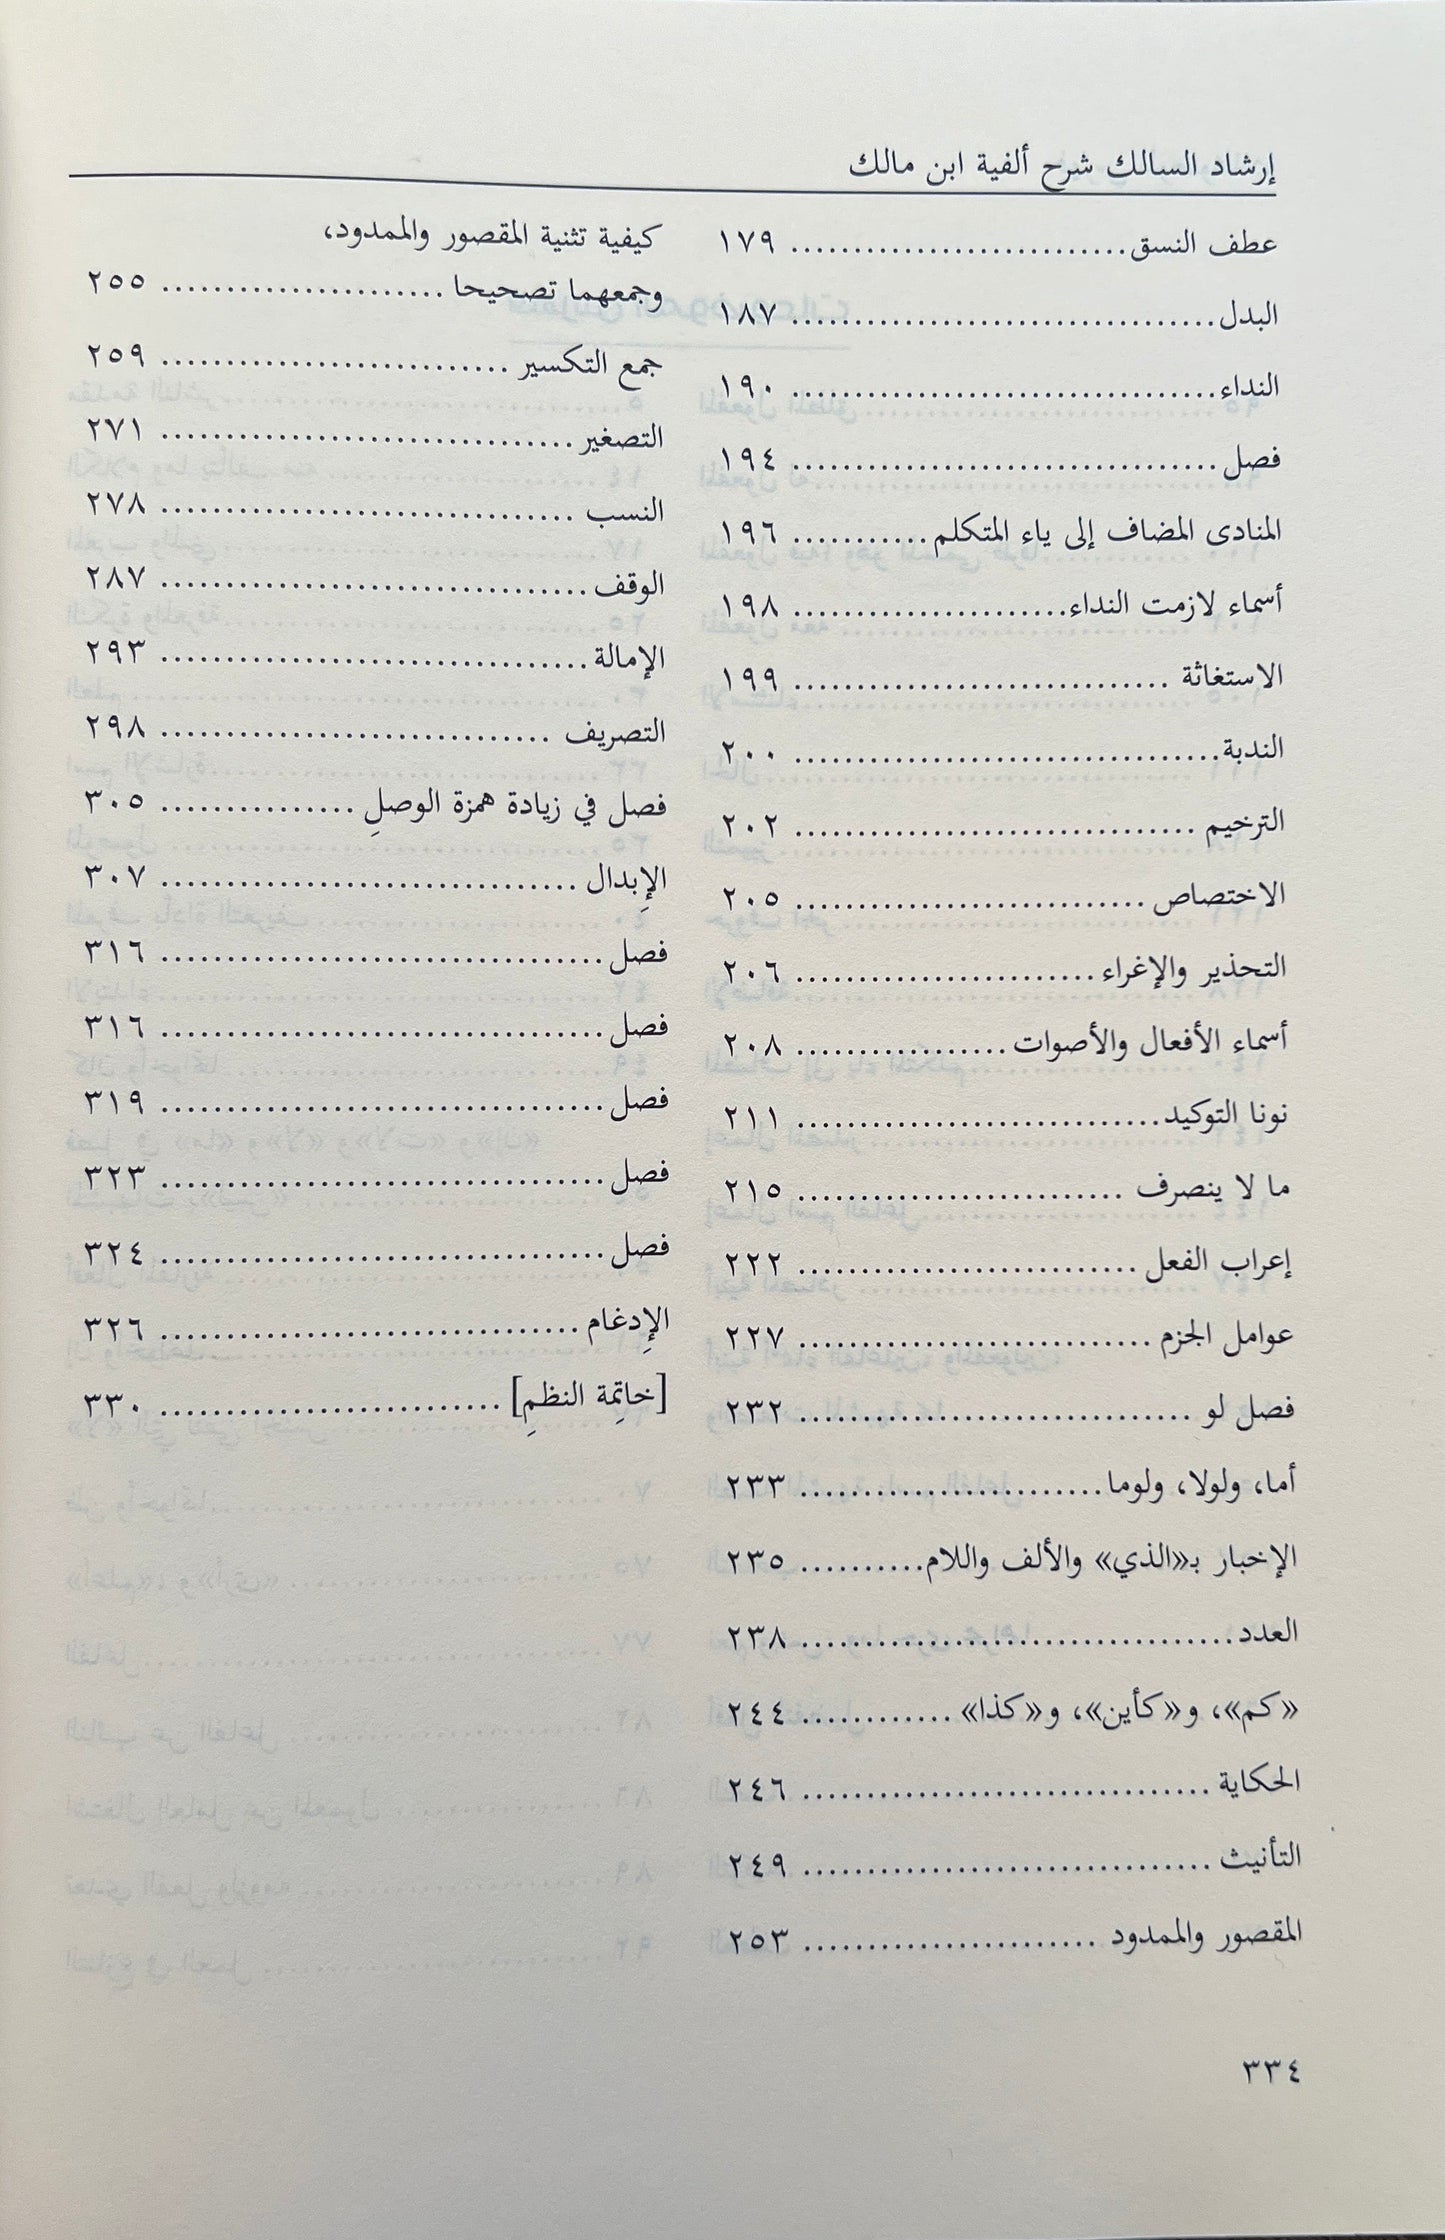 إرشاد السالك شرح ألفية ابن مالك
عطف النسق ........................... ١٧٩
البدل ................................... ١٨٧
النداء ................................... ١٩٠
فصل ................................... ١٩٤
المنادى المضاف إلى ياء المتكلم ........... ١٩٦
أسماء لازمت النداء ...................... ١٩٨
الاستغاثة .............................. ١٩٩
الندبة .................................. ٢٠٠
الترخيم ................................ ٢٠٢
الاختصاص ............................ ٢٠٥
التحذير والإغراء ........................ ٢٠٦
أسماء الأفعال والأصوات ................. ٢٠٨
نونا التوكيد ............................. ٢١١
ما لا ينصرف .......................... ٢١٥
إعراب الفعل ........................... ٢٢٢
عوامل الجزم ............................ ٢٢٧
فصل لو ............................... ٢٣٢
أما، ولولا، ولوما ........................ ٢٣٣
الإخبار بـ«الذي» والألف واللام .......... ٢٣٥
العدد .................................. ٢٣٨
«كم»، و«كأين»، و«كذا» ............ ٢٤٤
الحكاية ................................ ٢٤٦
التأنيث ................................ ٢٤٩
المقصور والممدود ....................... ٢٥٣
كيفية تثنية المقصور والممدود،
وجمعهما تصحيحا ....................... ٢٥٥
جمع التكسير ............................ ٢٥٩
التصغير ................................. ٢٧١
النسب ................................. ٢٧٨
الوقف .................................. ٢٨٧
الإمالة .................................. ٢٩٣
التصريف ............................... ٢٩٨
فصل في زيادة همزة الوصلِ ................ ٣٠٥
الإِبدال ................................. ٣٠٧
فصل ................................... ٣١٦
فصل ................................... ٣١٦
فصل ................................... ٣١٩
فصل ................................... ٣٢٣
فصل ................................... ٣٢٤
الإِدغام ................................. ٣٢٦
[خاتِمة النظمِ] ........................... ٣٣٠
٣٣٤